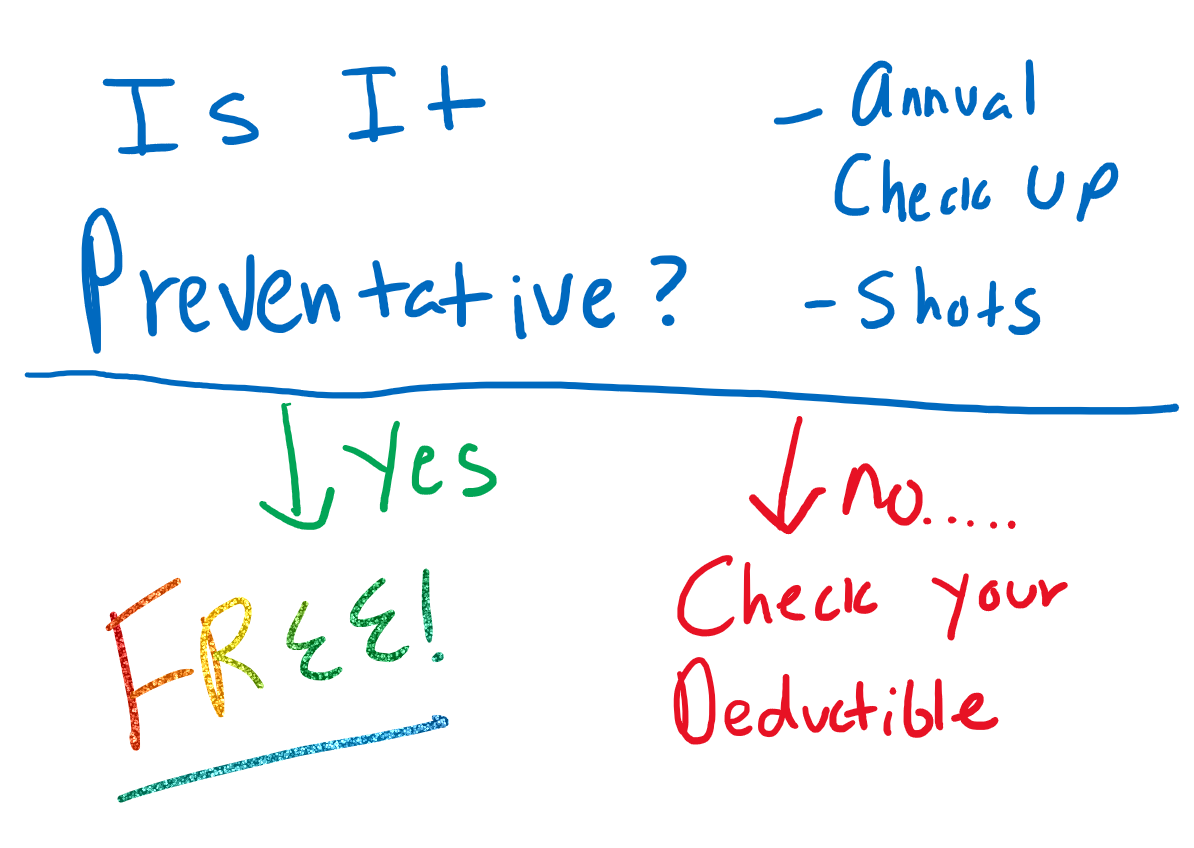 Is It
Preventative?
- Annual
Check Up
- Shots
Yes
FREE!
No.....
Check your
Deductible